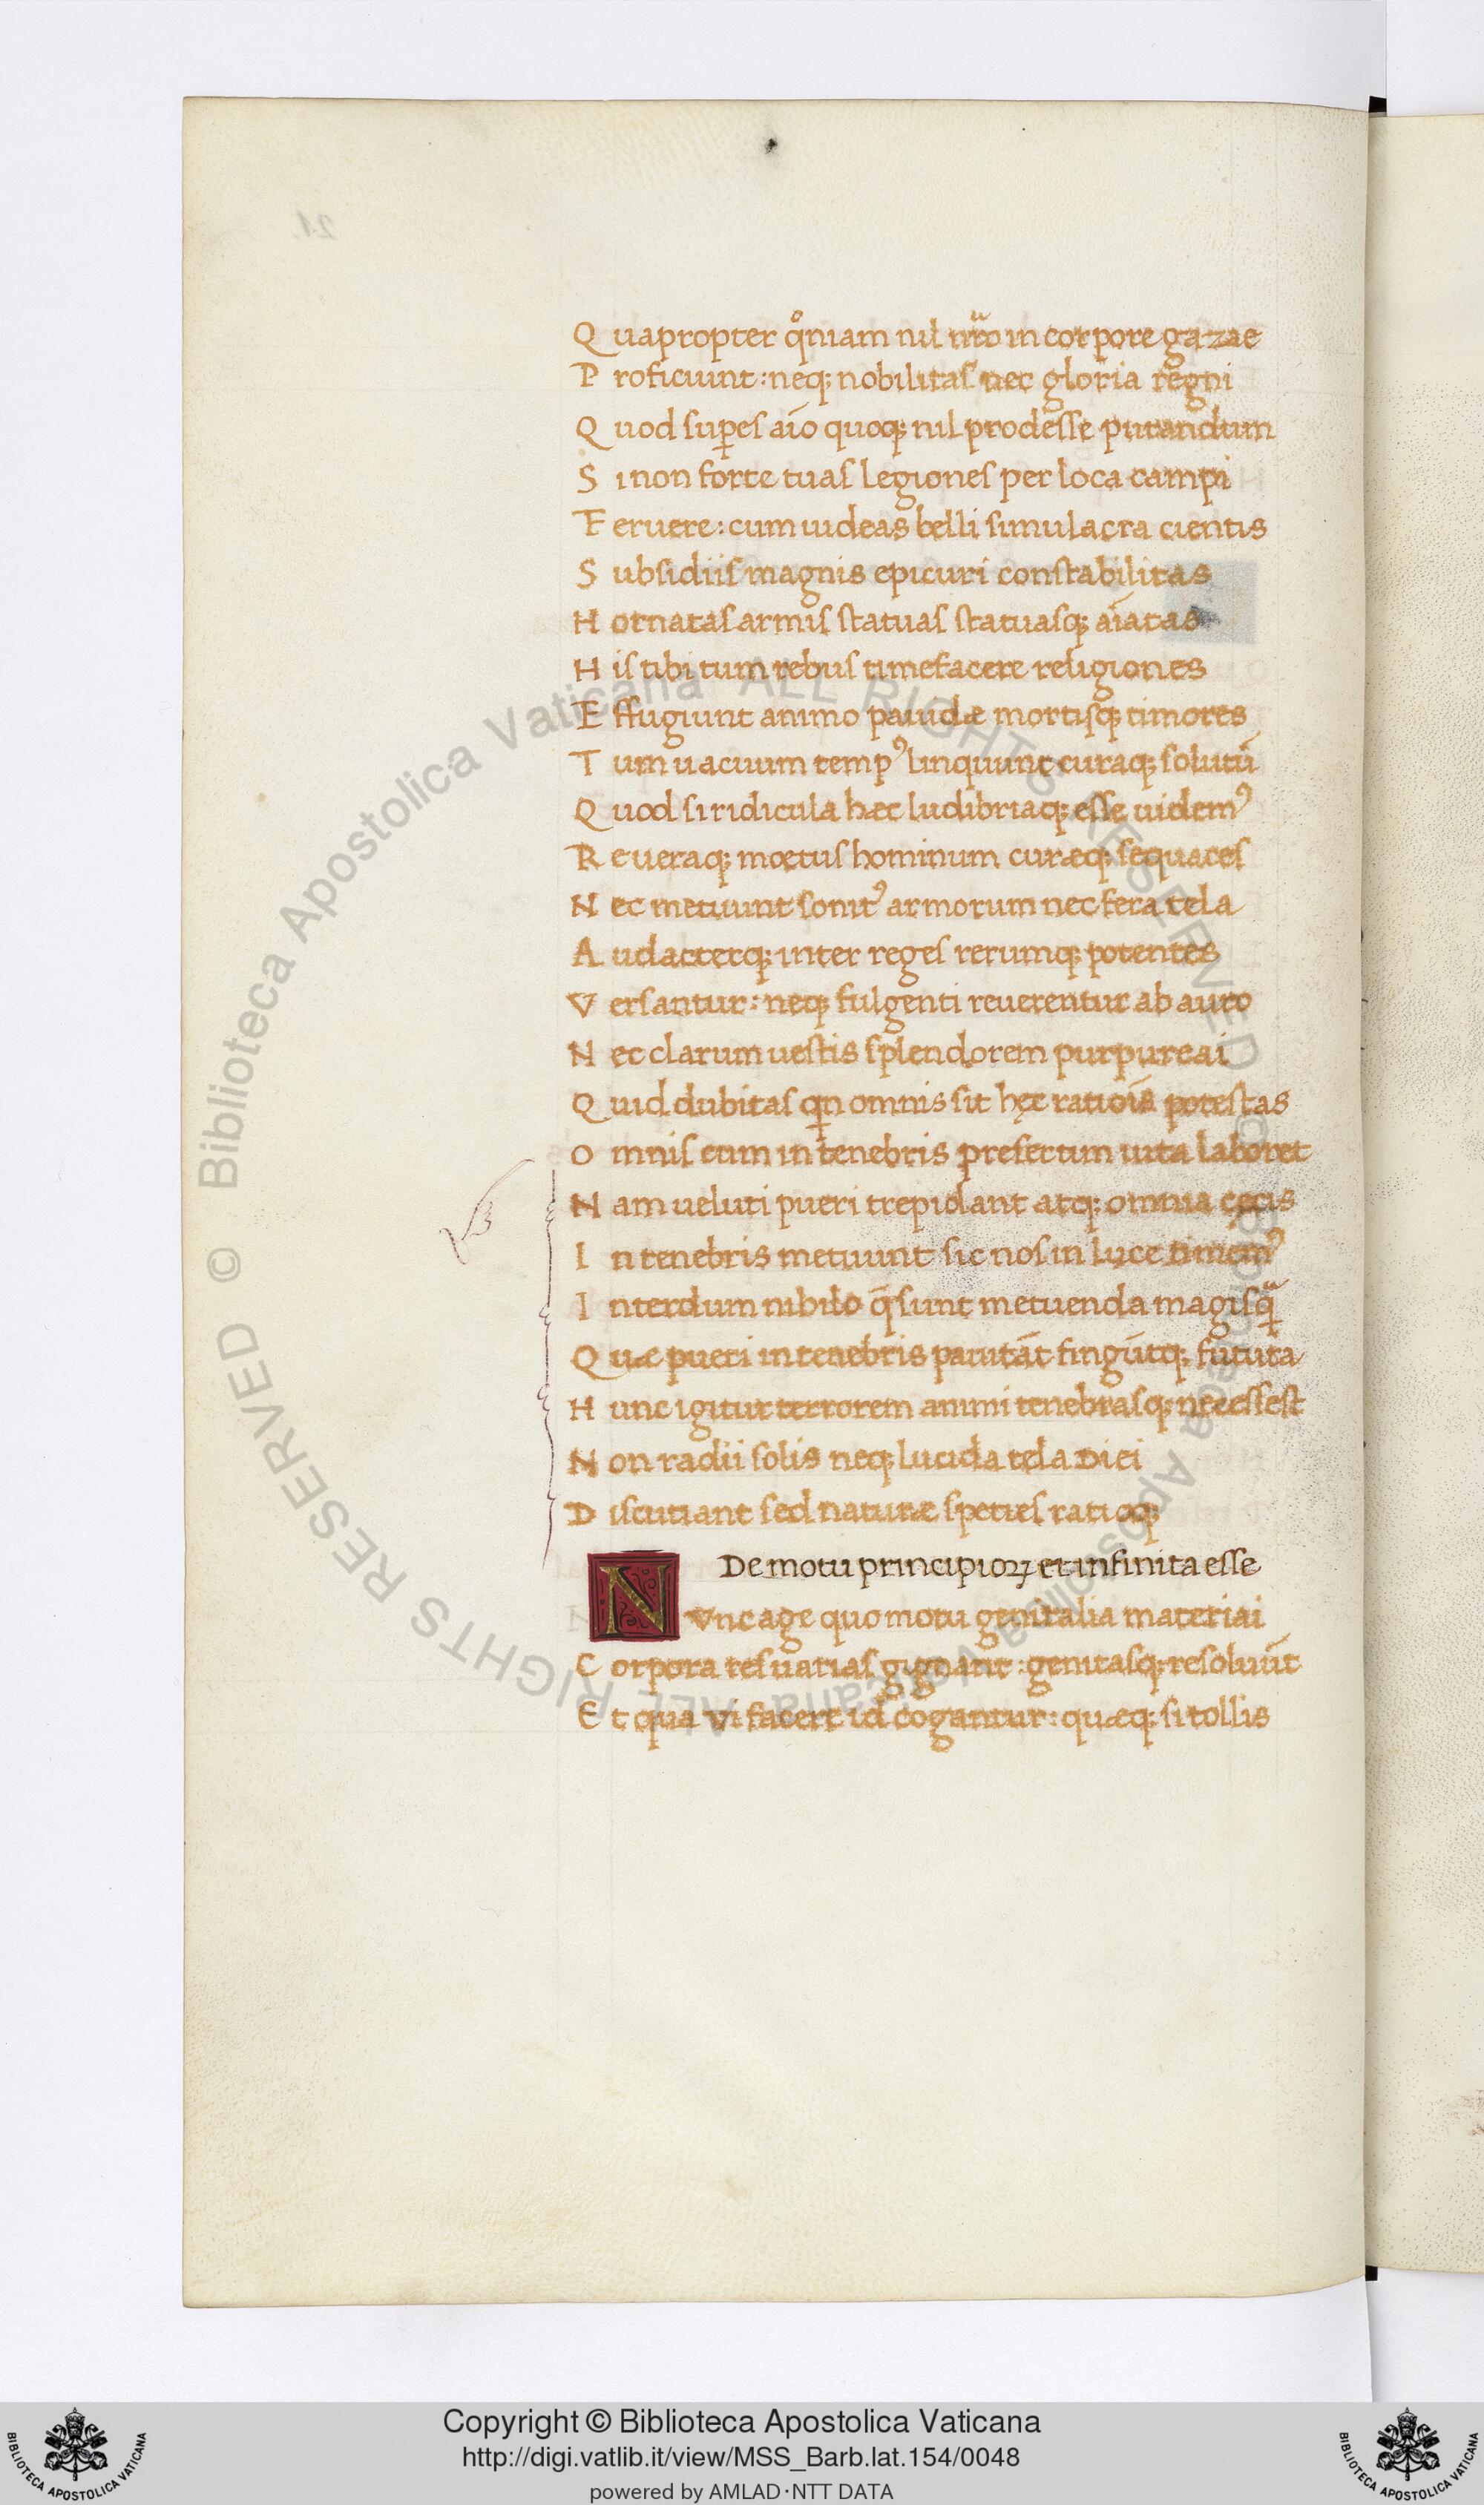 Quapropter qͦniam nil nr̃o in corpore gazae
Proficiunt: neq; nobilitas nec gloria regni
Quod suꝑes aīo quoq; nil prodesse putandum
Si non forte tuas legiones per loca campi
Feruere: cum uideas belli simulacra cientis
Subsidiis magnis epicuri constabilitas
Hornatas armis statuas statuasq; aīatas
His tibi tum rebus timefacere religiones
Effugiunt animo pauidæ mortisq; timores
Tum uacuum tempꝰ linquunt curaq; solutū
Quod si ridicula hæc ludibriaq; esse uidemꝰ
Reueraq; moetus hominum curæq; sequaces
Nec metuunt sonitꝰ armorum nec fera tela
Audacterq; inter reges rerumq; potentes
Versantur: neq; fulgenti reuerentur ab auro
Nec clarum uestis splendorem purpureai
Quid dubitas qn omnis sit hęc ratiōis potestas
Omnis cum in tenebris presertim uita laboret
Nam ueluti pueri trepidant atq; omnia cęcis
In tenebris metuunt sic nos in luce timemꝰ
Interdum nihilo q̄ sunt metuenda magisq̃
Quæ pueri in tenebris pauitāt fingūtq; futura
Hunc igitur terrorem animi tenebrasq; necessest
Non radii solis neq; lucida tela diei
Discutiant sed naturæ speties ratioq;
De motu principioꝝ et infinita esse
NVnc age quo motu genitalia materiai
Corpora res uarias gignant: genitasq; resoluūt
Et qua vi facere id cogantur: quæq; si tollis
© Biblioteca Apostolica Vaticana ALL RIGHTS RESERVED
Copyright © Biblioteca Apostolica Vaticana
http://digi.vatlib.it/view/MSS_Barb.lat.154/0048
powered by AMLAD·NTT DATA
BIBLIOTECA APOSTOLICA VATICANA
BIBLIOTECA APOSTOLICA VATICANA